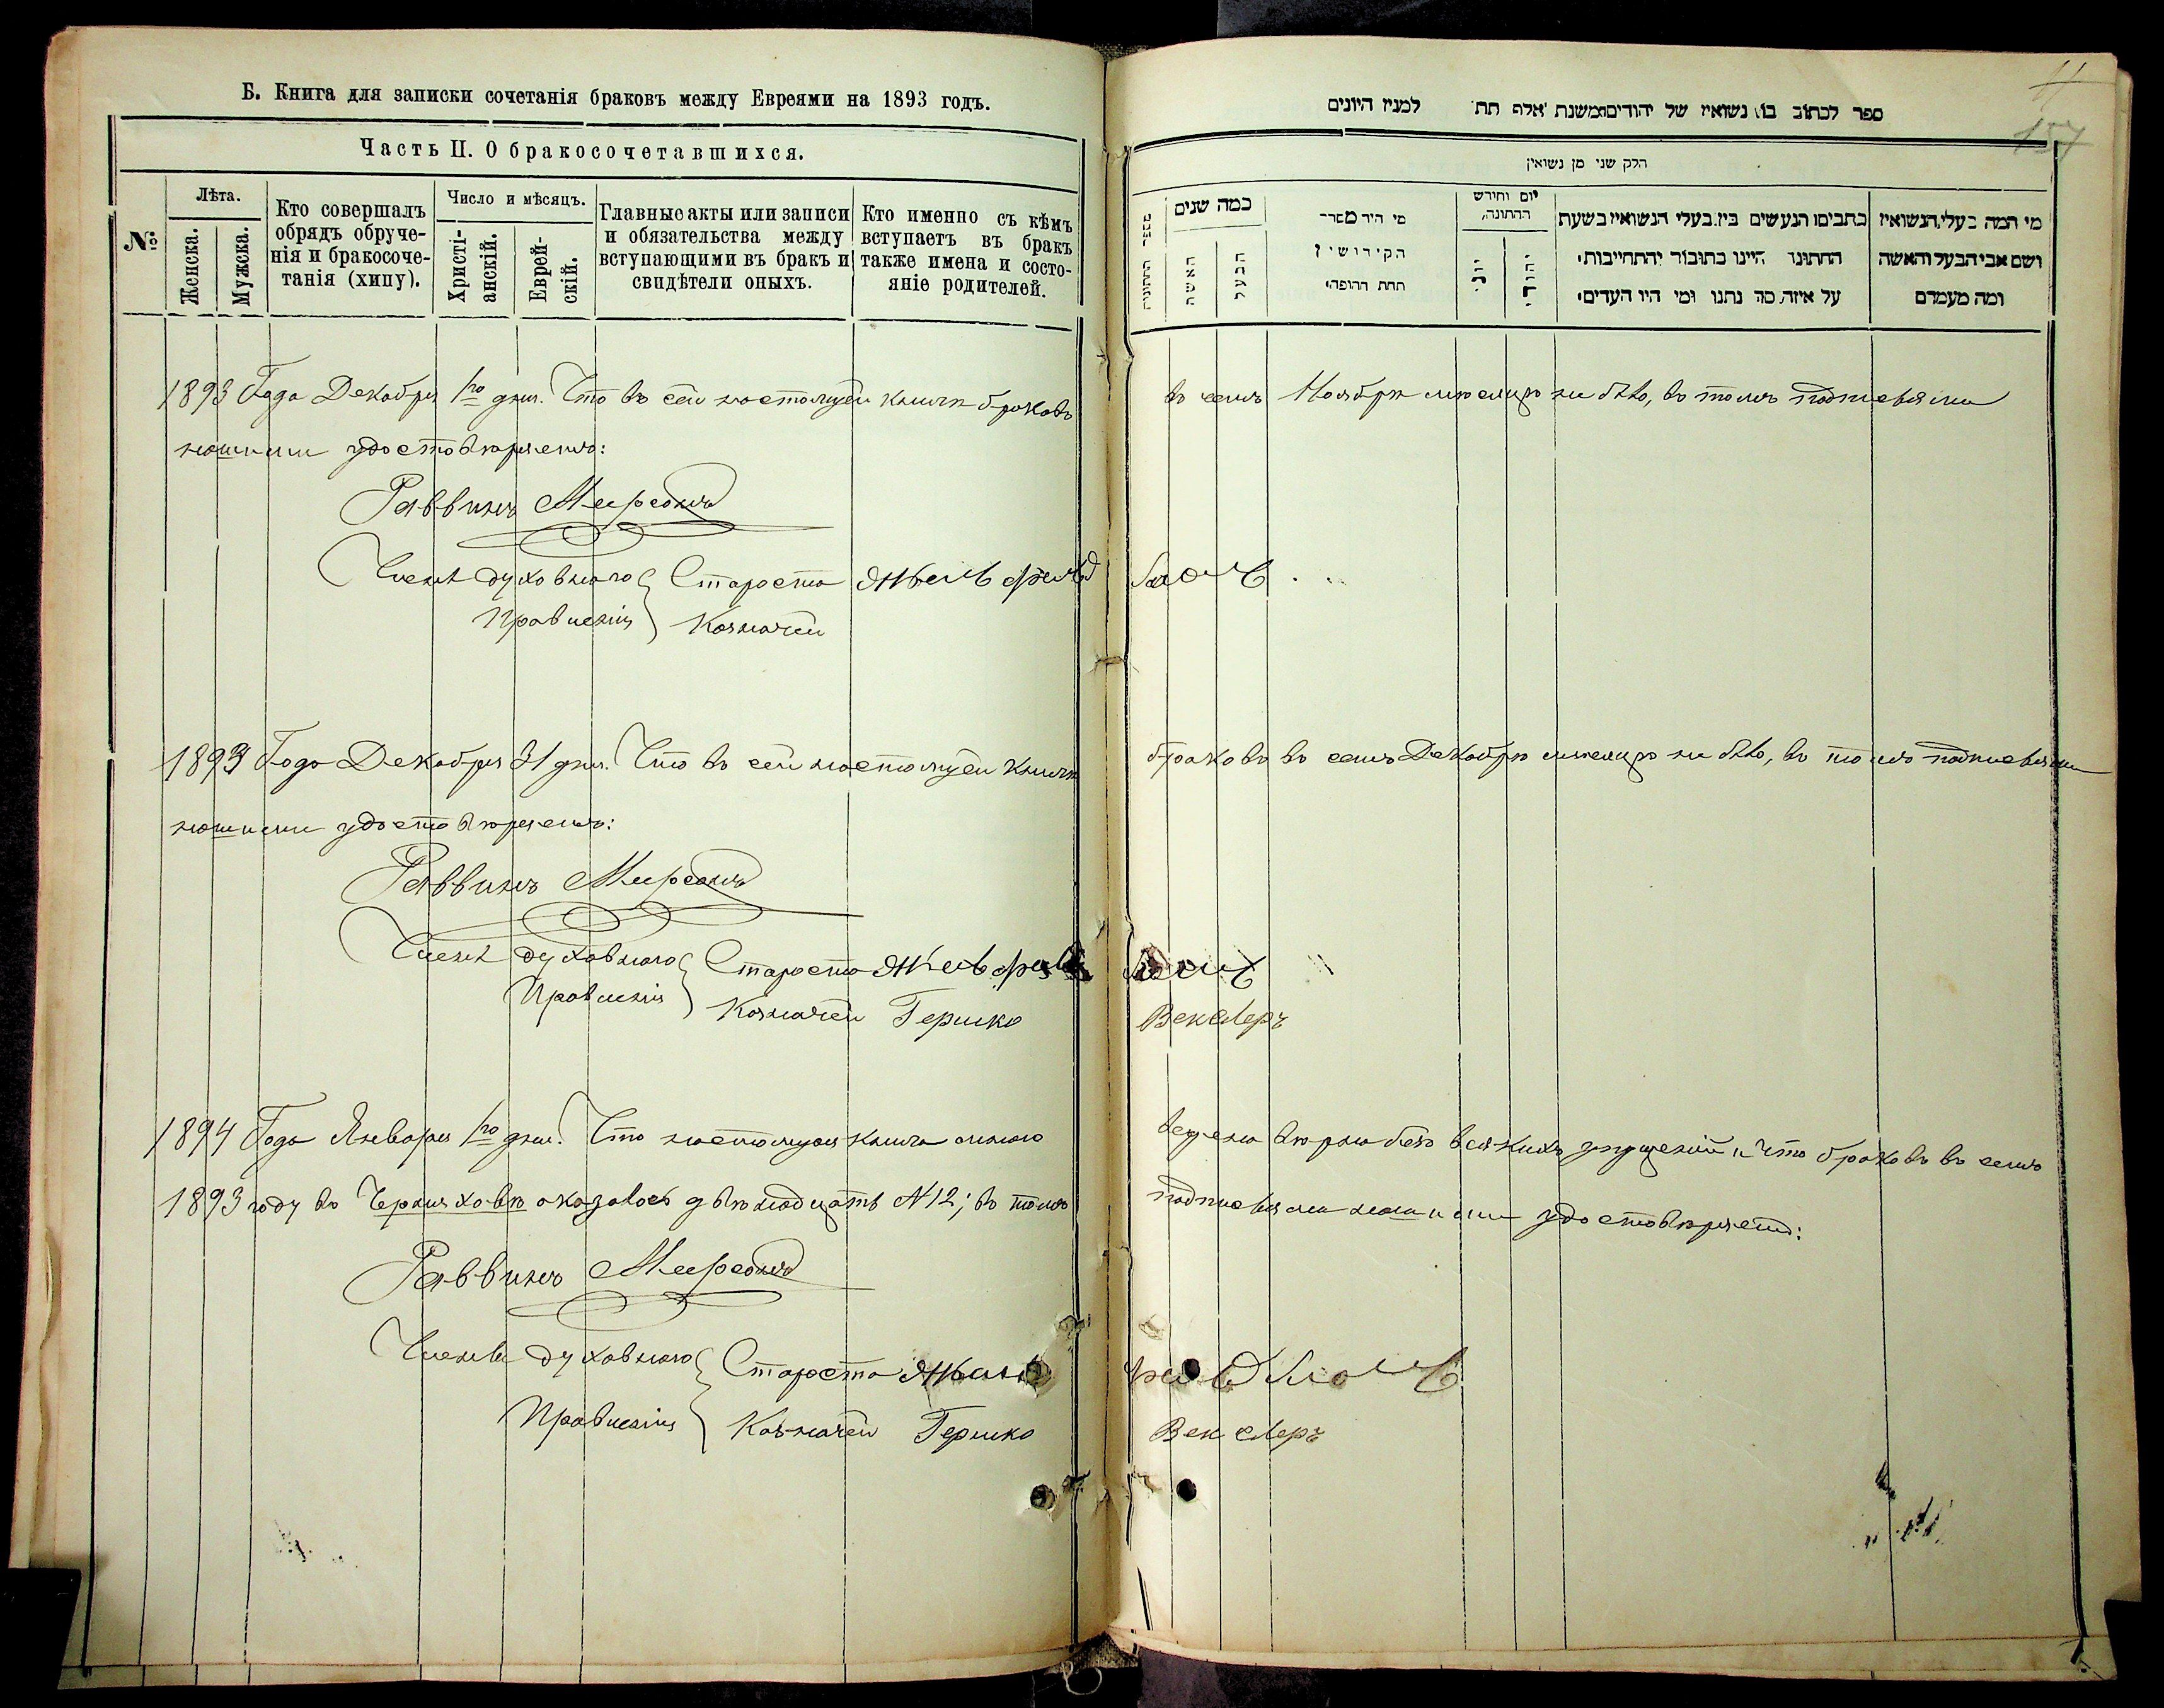 Б. Книга для записки сочетанія браковъ между Евреями на 1893 годъ.
Часть II. О бракосочетавшихся.
№
Лѣта.
Женска.
Мужска.
Кто совершалъ
обрядъ обруче-
нія и бракосоче-
танія (хипу).
Число и мѣсяцъ.
Христі-
анскій.
Еврей-
скій.
Главные акты или записи
и обязательства между
вступающими въ бракъ и
свидѣтели оныхъ.
Кто именно съ кѣмъ
вступаетъ въ бракъ
также имена и состо-
яніе родителей.
1893 Года Декабря 1го дня. Что въ сей настоящей книгѣ браковъ
нашими удостовѣряемъ:
Раввинъ Меерсонъ
Члены духовнаго Староста
Правленія Казначей
1893 Года Декабря 31 дня. Что въ сей настоящей книгѣ
нашими удостовѣряемъ:
Раввинъ Меерсонъ
Члены духовнаго Староста
Правленія Казначей Гершко
1894 Года Января 1го дня. Что настоящая книга мною
1893 году въ Черняховѣ оказалось двѣнадцать № 12; въ томъ
Раввинъ Меерсонъ
Члены духовнаго Староста
Правленія Казначей Гершко
11
157
ספר לכתוב בו נשואין של יהודים משנת אלף תת למנין היונים
חלק שני מן נשואין
מספר החתונות
כמה שנים
האשה
הבעל
מי היה מסדר
הקידושין
תחת החופה׃
יום וחודש
החתונה׃
יוני
יהודי
כתבים הנעשים בין בעלי הנשואין בשעת
החתונה היינו כתובה והתחייבות׃
על איזה סה נתנו ומי היו העדים׃
מי המה בעלי הנשואין
ושם אבי הבעל והאשה
ומה מעמדם
въ семъ Ноябрѣ мѣсяцѣ не было, въ томъ подписями
браковъ въ семъ Декабрѣ мѣсяцѣ не было, въ томъ подписями
Векслеръ
ведена вѣрно безъ всякихъ упущеній и что браковъ въ семъ
подписями нашими удостовѣряемъ:
Векслеръ